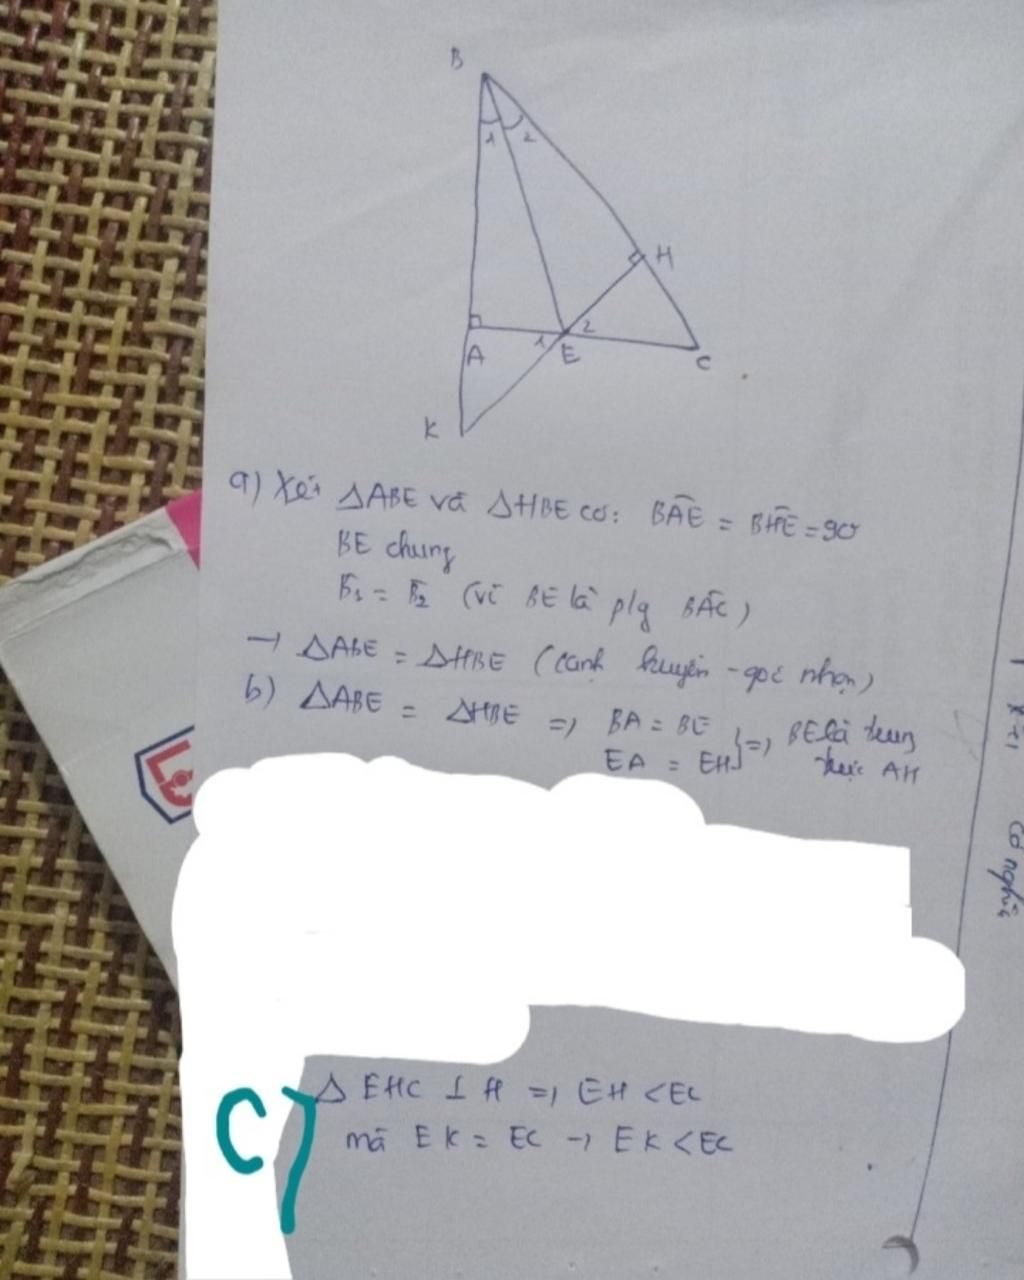 B
1 2
H
A 1 E 2 C
K
a) Xét ΔABE và ΔHBE có: BÂE = BĤE = 90
BE chung
B̂1 = B̂2 (vì BE là p/g BÂC)
→ ΔABE = ΔHBE (cạnh huyền - góc nhọn)
b) ΔABE = ΔHBE => BA = BE } => BE là trung
EA = EH trực AH
có nghĩ
c) Δ EHC ⊥ H => EH < EC
mà EK = EC → EK < EC